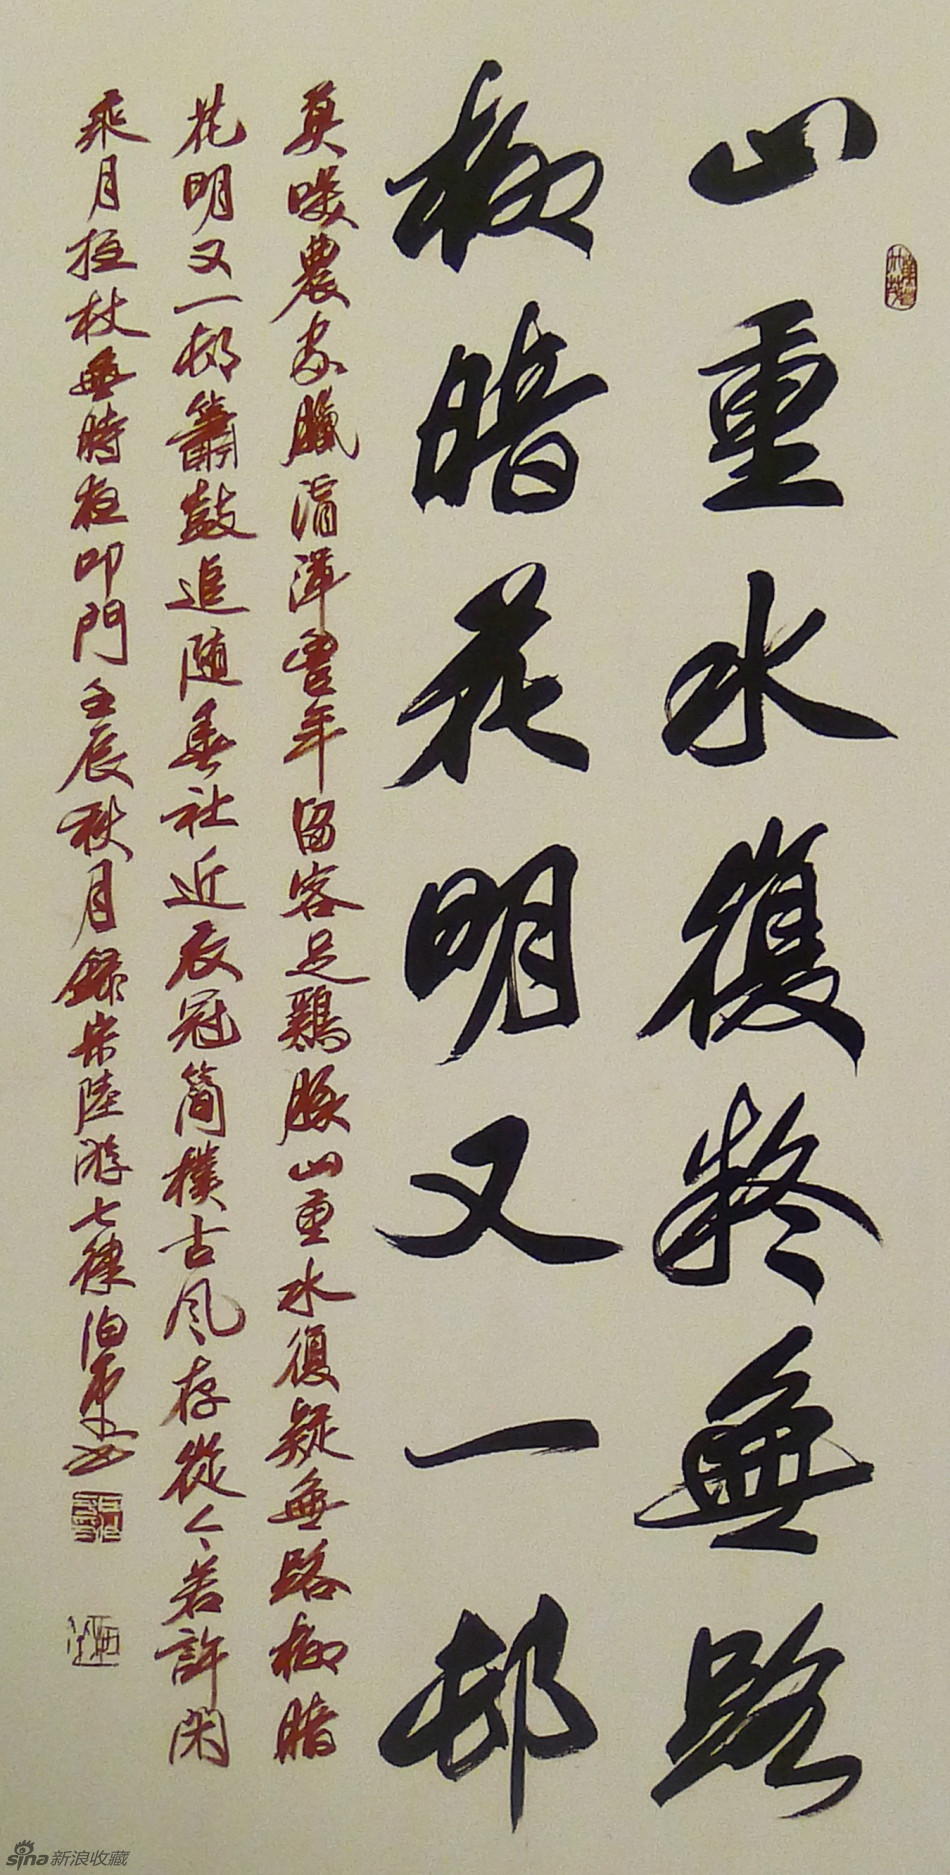 山重水復疑無路
柳暗花明又一邨
莫咲農家臘酒渾豐年留客足鷄豚山重水復疑無路柳暗
花明又一邨簫鼓追随春社近衣冠简樸古风存從今若許闲
乘月拄杖無時夜叩門壬辰秋月録宋陸游七律
sina新浪收藏